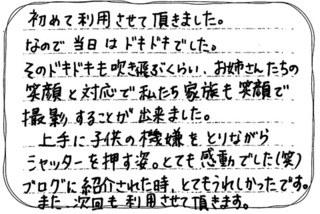 初めて利用させて頂きました。
なので当日はドキドキでした。
そのドキドキも吹き飛ぶくらい、お姉さんたちの
笑顔と対応で私たち家族も笑顔で
撮影することが出来ました。
上手に子供の機嫌をとりながら
シャッターを押す姿。とても感動でした(笑)
ブログに紹介された時、とてもうれしかったです。
また、次回も利用させて頂きます。